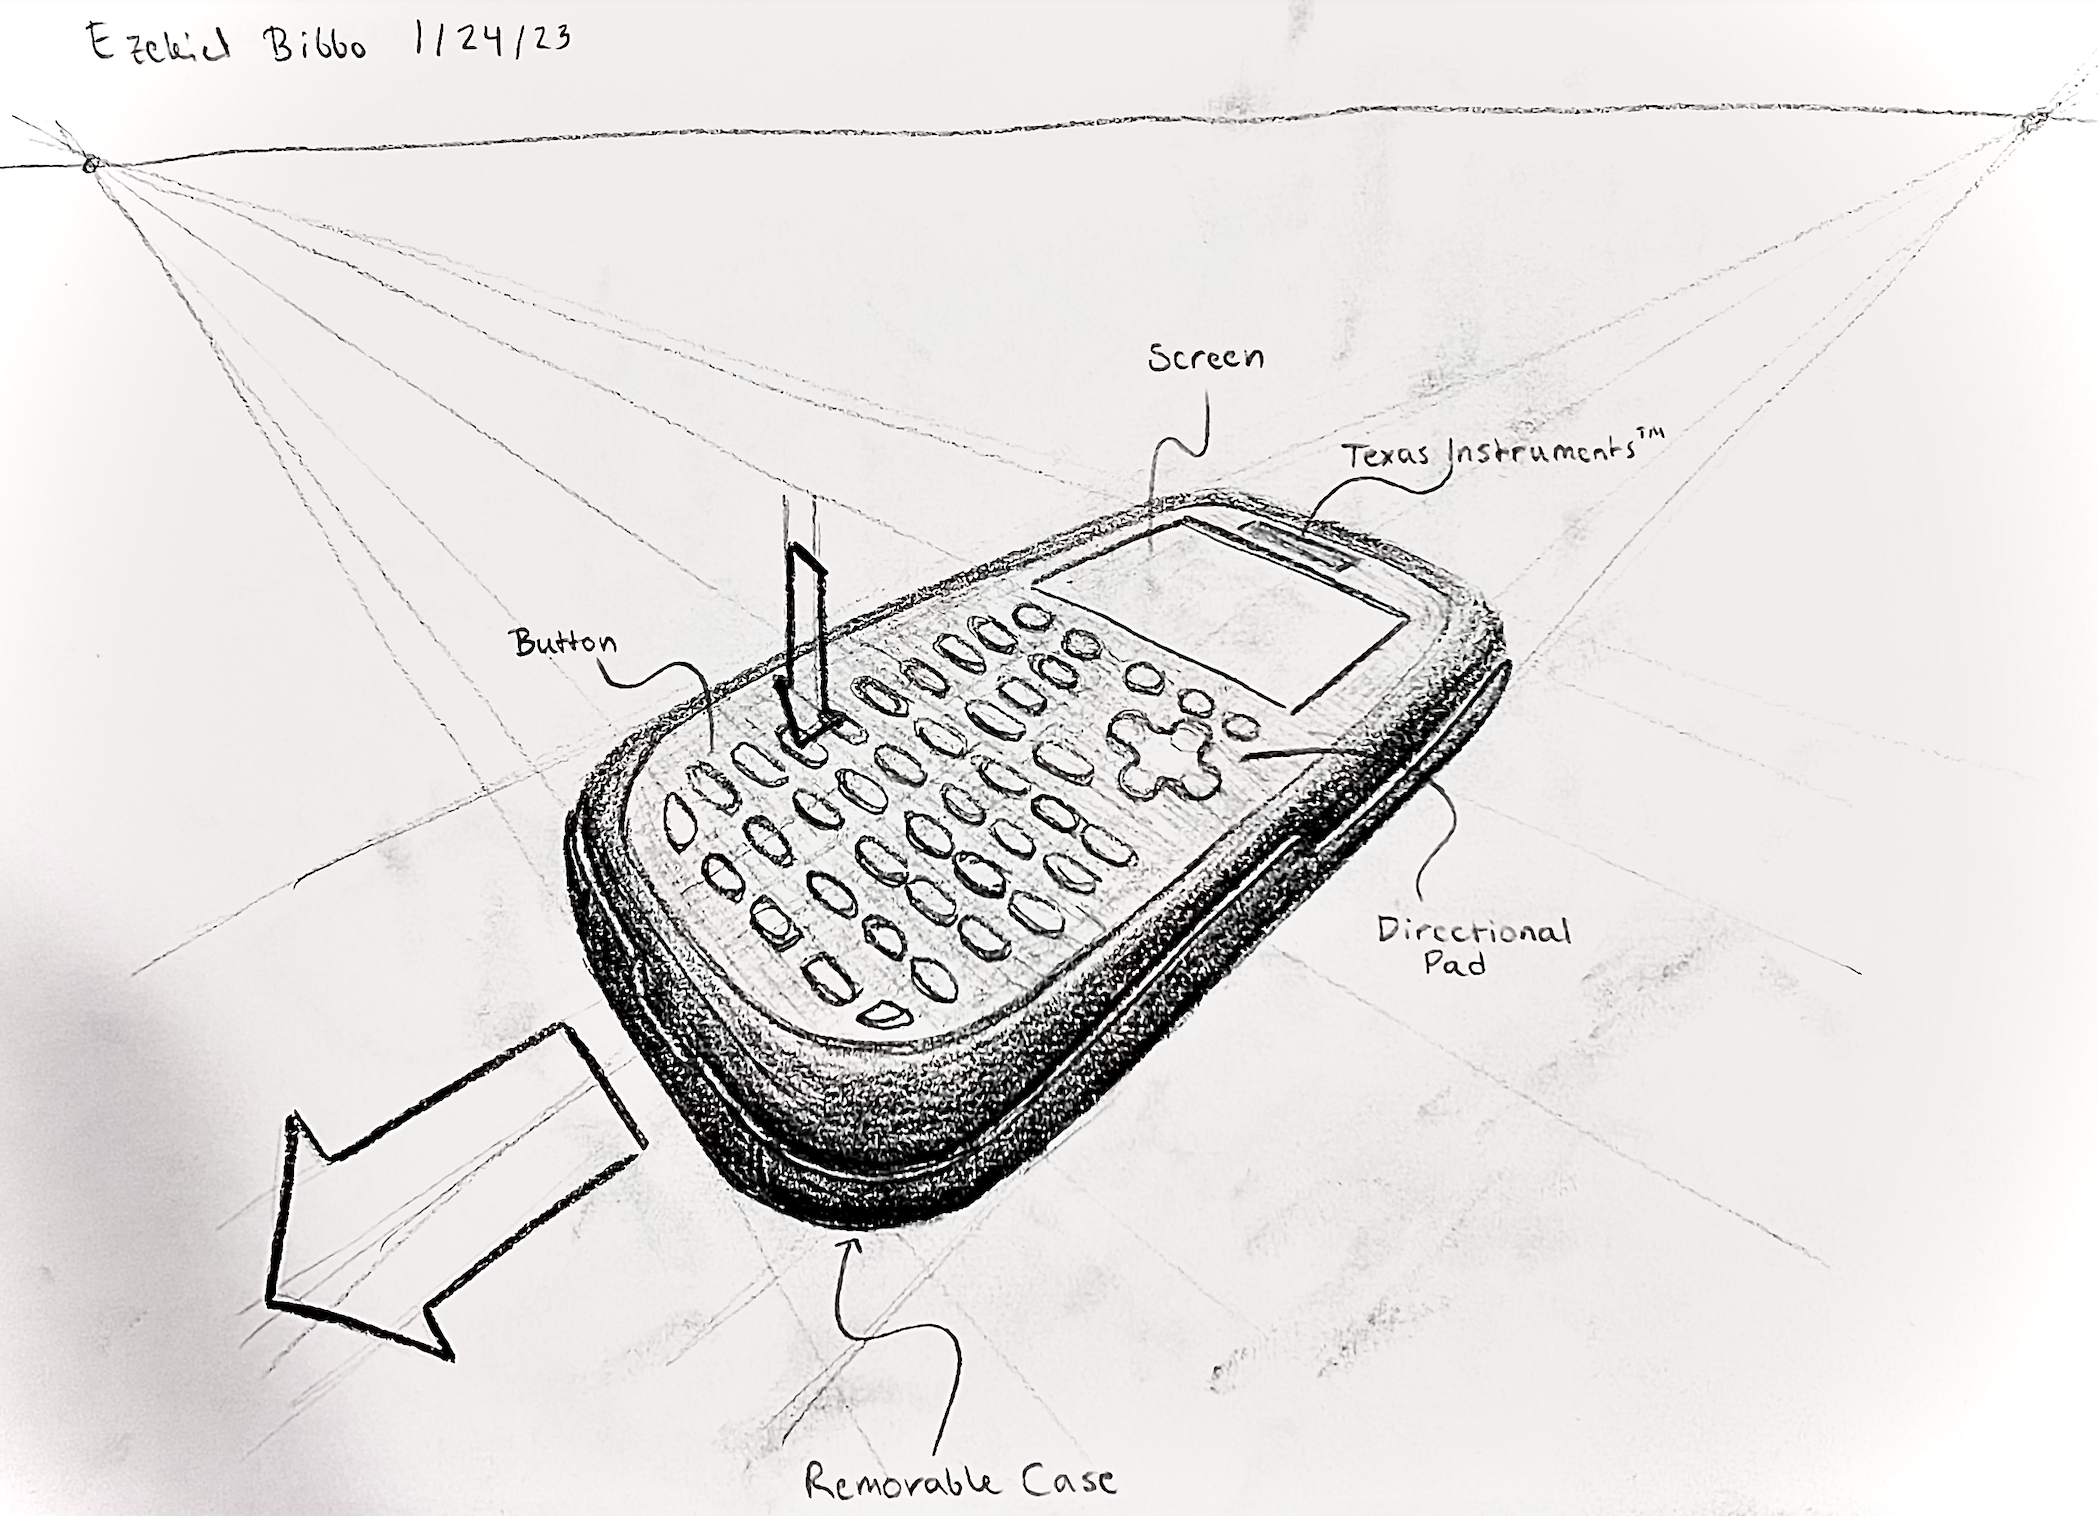 Ezekiel Bibbo 1/24/23
Screen
Texas Instruments™
Button
Directional
Pad
Removable Case